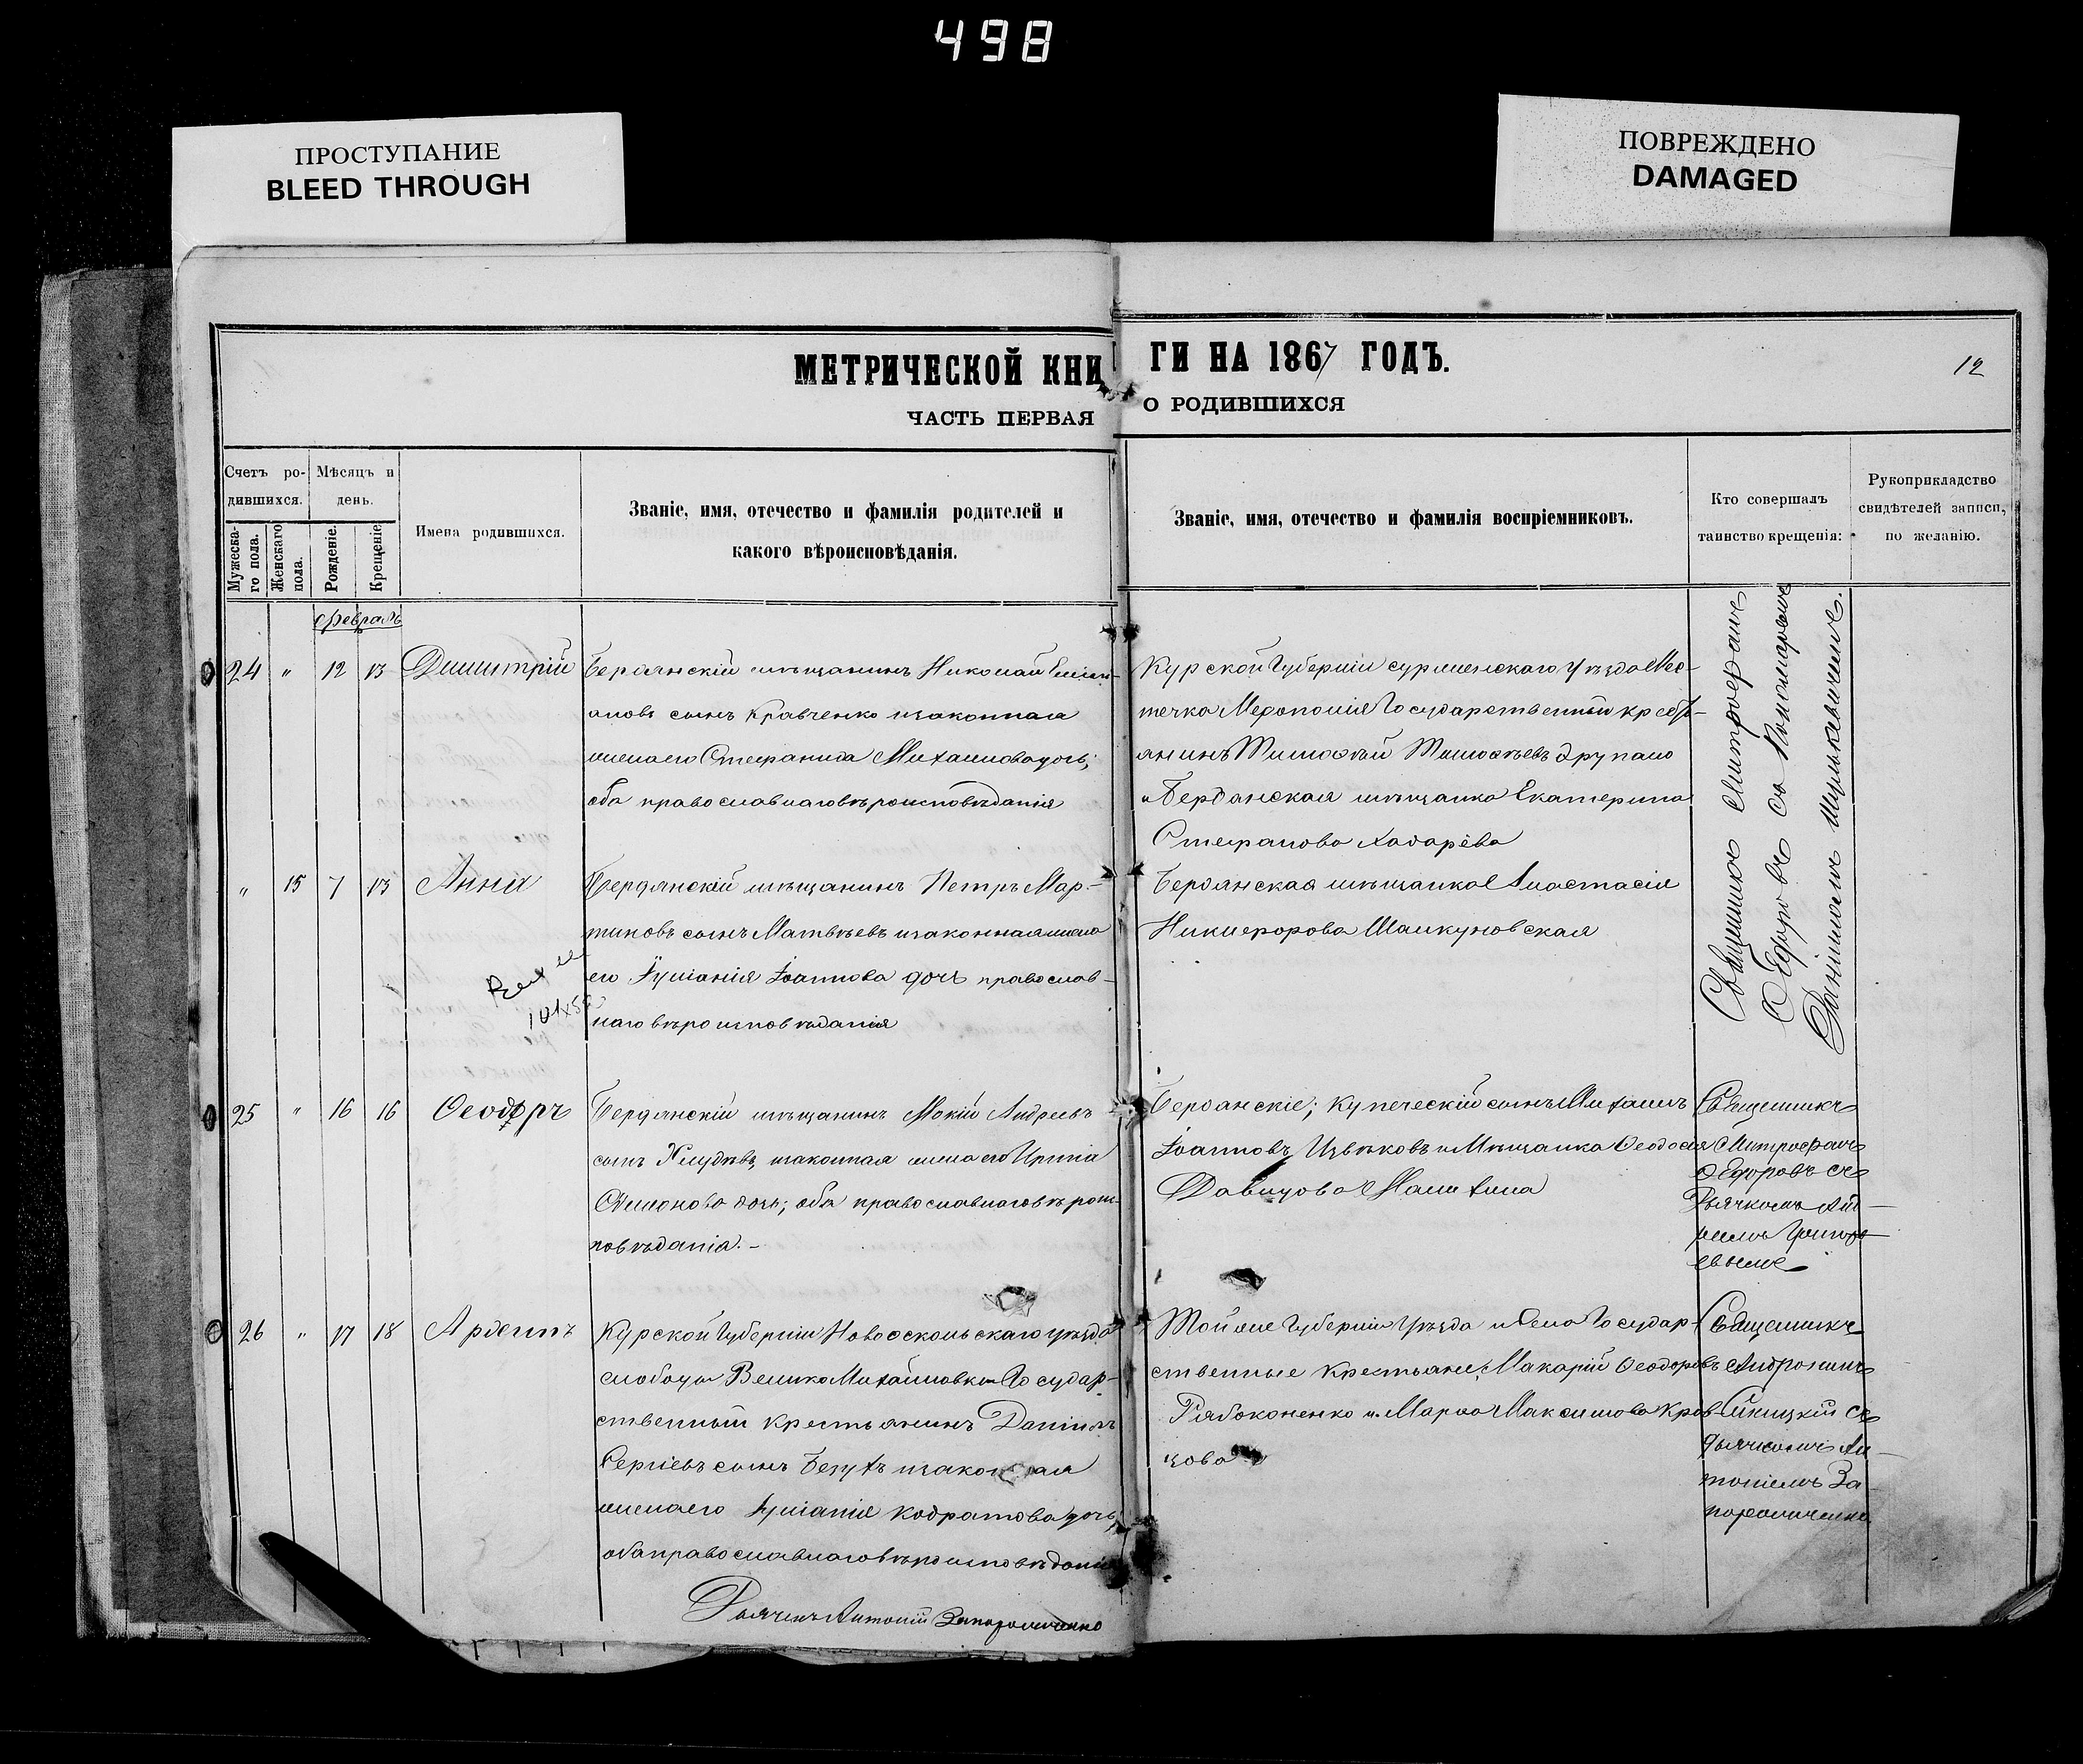 498
ПРОСТУПАНИЕ
BLEED THROUGH
ПОВРЕЖДЕНО
DAMAGED
МЕТРИЧЕСКОЙ КНИ ГИ НА 1867 ГОДЪ.
12
ЧАСТЬ ПЕРВАЯ О РОДИВШИХСЯ
Счетъ ро-
дившихся.
Мужеска-
го пола.
Женскаго
пола.
Мѣсяцъ и
день.
Рожденіе.
Крещеніе
Имена родившихся.
Званіе, имя, отечество и фамилія родителей и
какого вѣроисповѣданія.
Званіе, имя, отечество и фамилія воспріемниковъ.
Кто совершалъ
таинство крещенія:
Рукоприкладство
свидѣтелей записи,
по желанію.
Февраль
24 " 12 13 Димитрій
Бердянскій мѣщанинъ Николай Емели-
ановъ сынъ Кравченко изаконная
женаего Стефанида Михаиловадочь;
оба православнаговѣроисповѣданія
Курской Губерніи Уѣзда Мѣс-
течка Мерополіе Государственный кресть-
янинъ Тимофѣй Тимофѣевъ
и Бердянская мѣщанка Екатерина
Стефанова
Священникъ Митрофанъ
Ефоровъ съ Пономаремъ
Данииломъ
" 15 7 13 Анна
Бердянскій мѣщанинъ Петръ Мар-
тиновъ сынъ Матвѣевъ изаконнаяжена
его Іуліанія Іоаннова дочь православ-
наго вѣроисповѣданія
Бердянская мѣщанка Анастасія
Никифорова
25 " 16 16 Ѳеодоръ
Бердянскій мѣщанинъ Мокій Андреевъ
сынъ изаконная жена его Ирина
Симонова дочь; оба православнаговѣроис-
повѣданія.-
Бердянскіе; Купеческій сынъ Михаилъ
Іоанновъ Извѣковъ и Мѣщанка Ѳеодосія
Давидова
Священникъ
Митрофанъ
Ефоровъ съ
Дьячкомъ
Григорь-
евымъ
26 " 17 18
Курской Губерніи Новооскольскаго уѣзда
слободы Велико Михайловки Государ-
ственный крестьянинъ Даніилъ
Сергіевъ сынъ изаконная
женаего Іуліанія Кодратовадочь,
обаправославнаговѣроисповѣданія
Той же Губерніи Уѣзда и Села Государ-
ственные Крестьяне; Макарій Ѳеодоровъ
Рябоконенко и Марѳа Максимова Крав-
цова
Священникъ
Андроникъ
съ
дьячкомъ Ан-
тоніемъ За-
порожченко
Дьячекъ Антоній Запорожченко